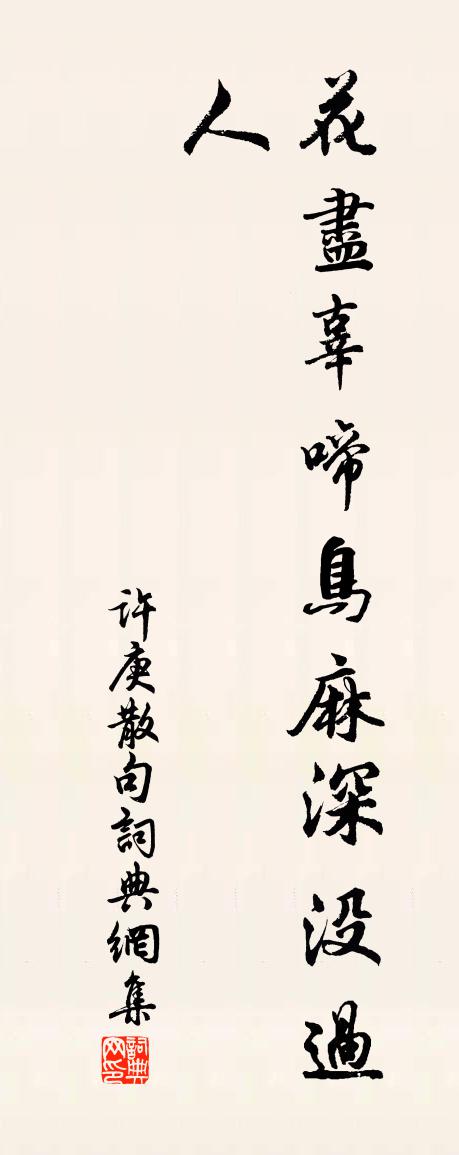 花盡辜啼鳥麻深没過
人
許庚散句詞典網集
詞典网印